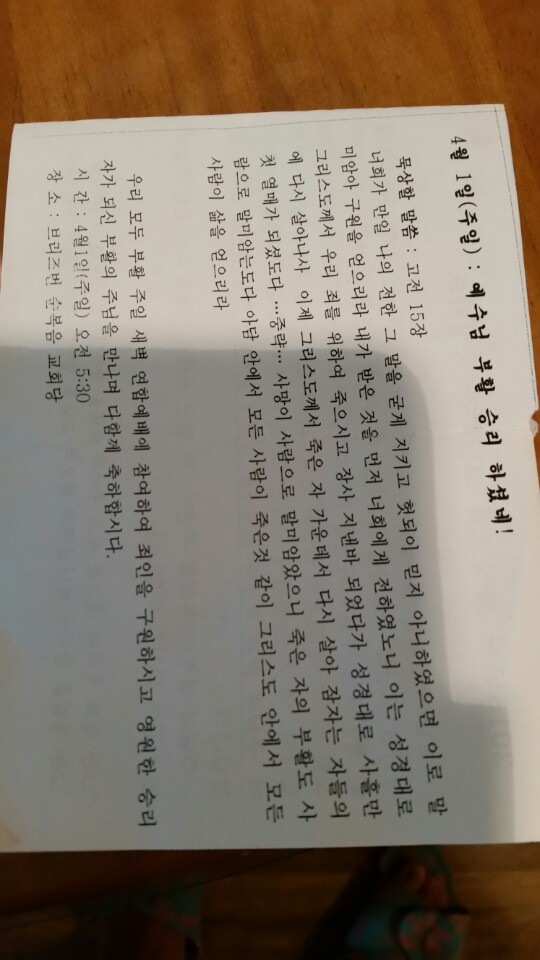 4월 1일(주일) : 예수님 부활 승리 하셨네!
묵상할 말씀 : 고전 15장
너희가 만일 나의 전한 그 말을 굳게 지키고 헛되이 믿지 아니하였으면 이로 말
미암아 구원을 얻으리라 내가 받은 것을 먼저 너희에게 전하였노니 이는 성경대로
그리스도께서 우리 죄를 위하여 죽으시고 장사 지낸바 되었다가 성경대로 사흘만
에 다시 살아나사 이제 그리스도께서 죽은 자 가운데서 다시 살아 잠자는 자들의
첫 열매가 되셨도다 ...중략... 사망이 사람으로 말미암았으니 죽은 자의 부활도 사
람으로 말미암는도다 아담 안에서 모든 사람이 죽은것 같이 그리스도 안에서 모든
사람이 삶을 얻으리라
우리 모두 부활 주일 새벽 연합예배에 참여하여 죄인을 구원하시고 영원한 승리
자가 되신 부활의 주님을 만나며 다함께 축하합시다.
시 간 : 4월1일(주일) 오전 5:30
장 소 : 브리즈번 순복음 교회당